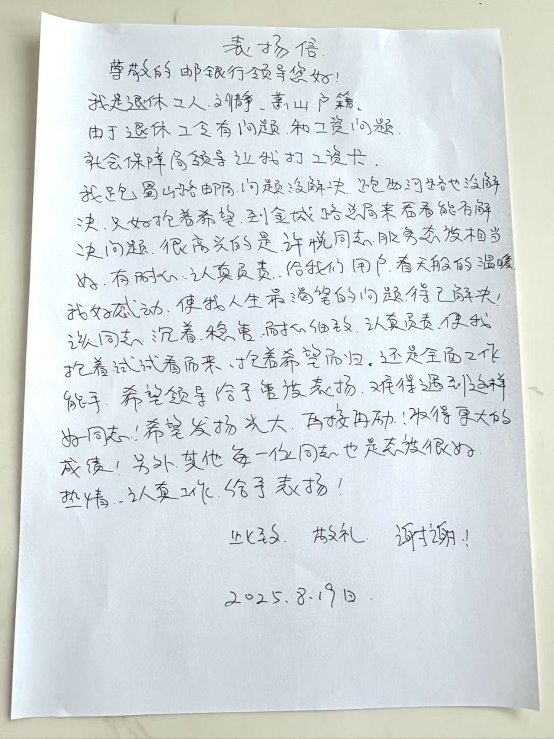 表扬信
尊敬的邮银行领导您好！
我是退休工人刘静、萧山户籍、
由于退休工令有问题和工资问题.
社会保障局领导让我打工资卡.
我是跑蜀山路邮局问题没解决跑西河路也没解
决.只好抱着希望到金城路总局来看看能否解
决问题.很高兴的是许悦同志服务态度相当
好.有耐心、认真负责、给我们用户春天般的温暖
我好感动、使我人生最渴望的问题得已解决！
该同志沉着、稳重、耐心细致、认真负责、使我
抱着试试看而来、抱着希望而归。还是全面工作
能手.希望领导给于重度表扬.难得遇到这样
好同志！希望发扬光大、再接再励！取得更大的
成绩！另外其他每一位同志也是态度很好.
热情、认真工作.给予表扬！
此致. 敬礼 谢谢！
2025.8.19日.